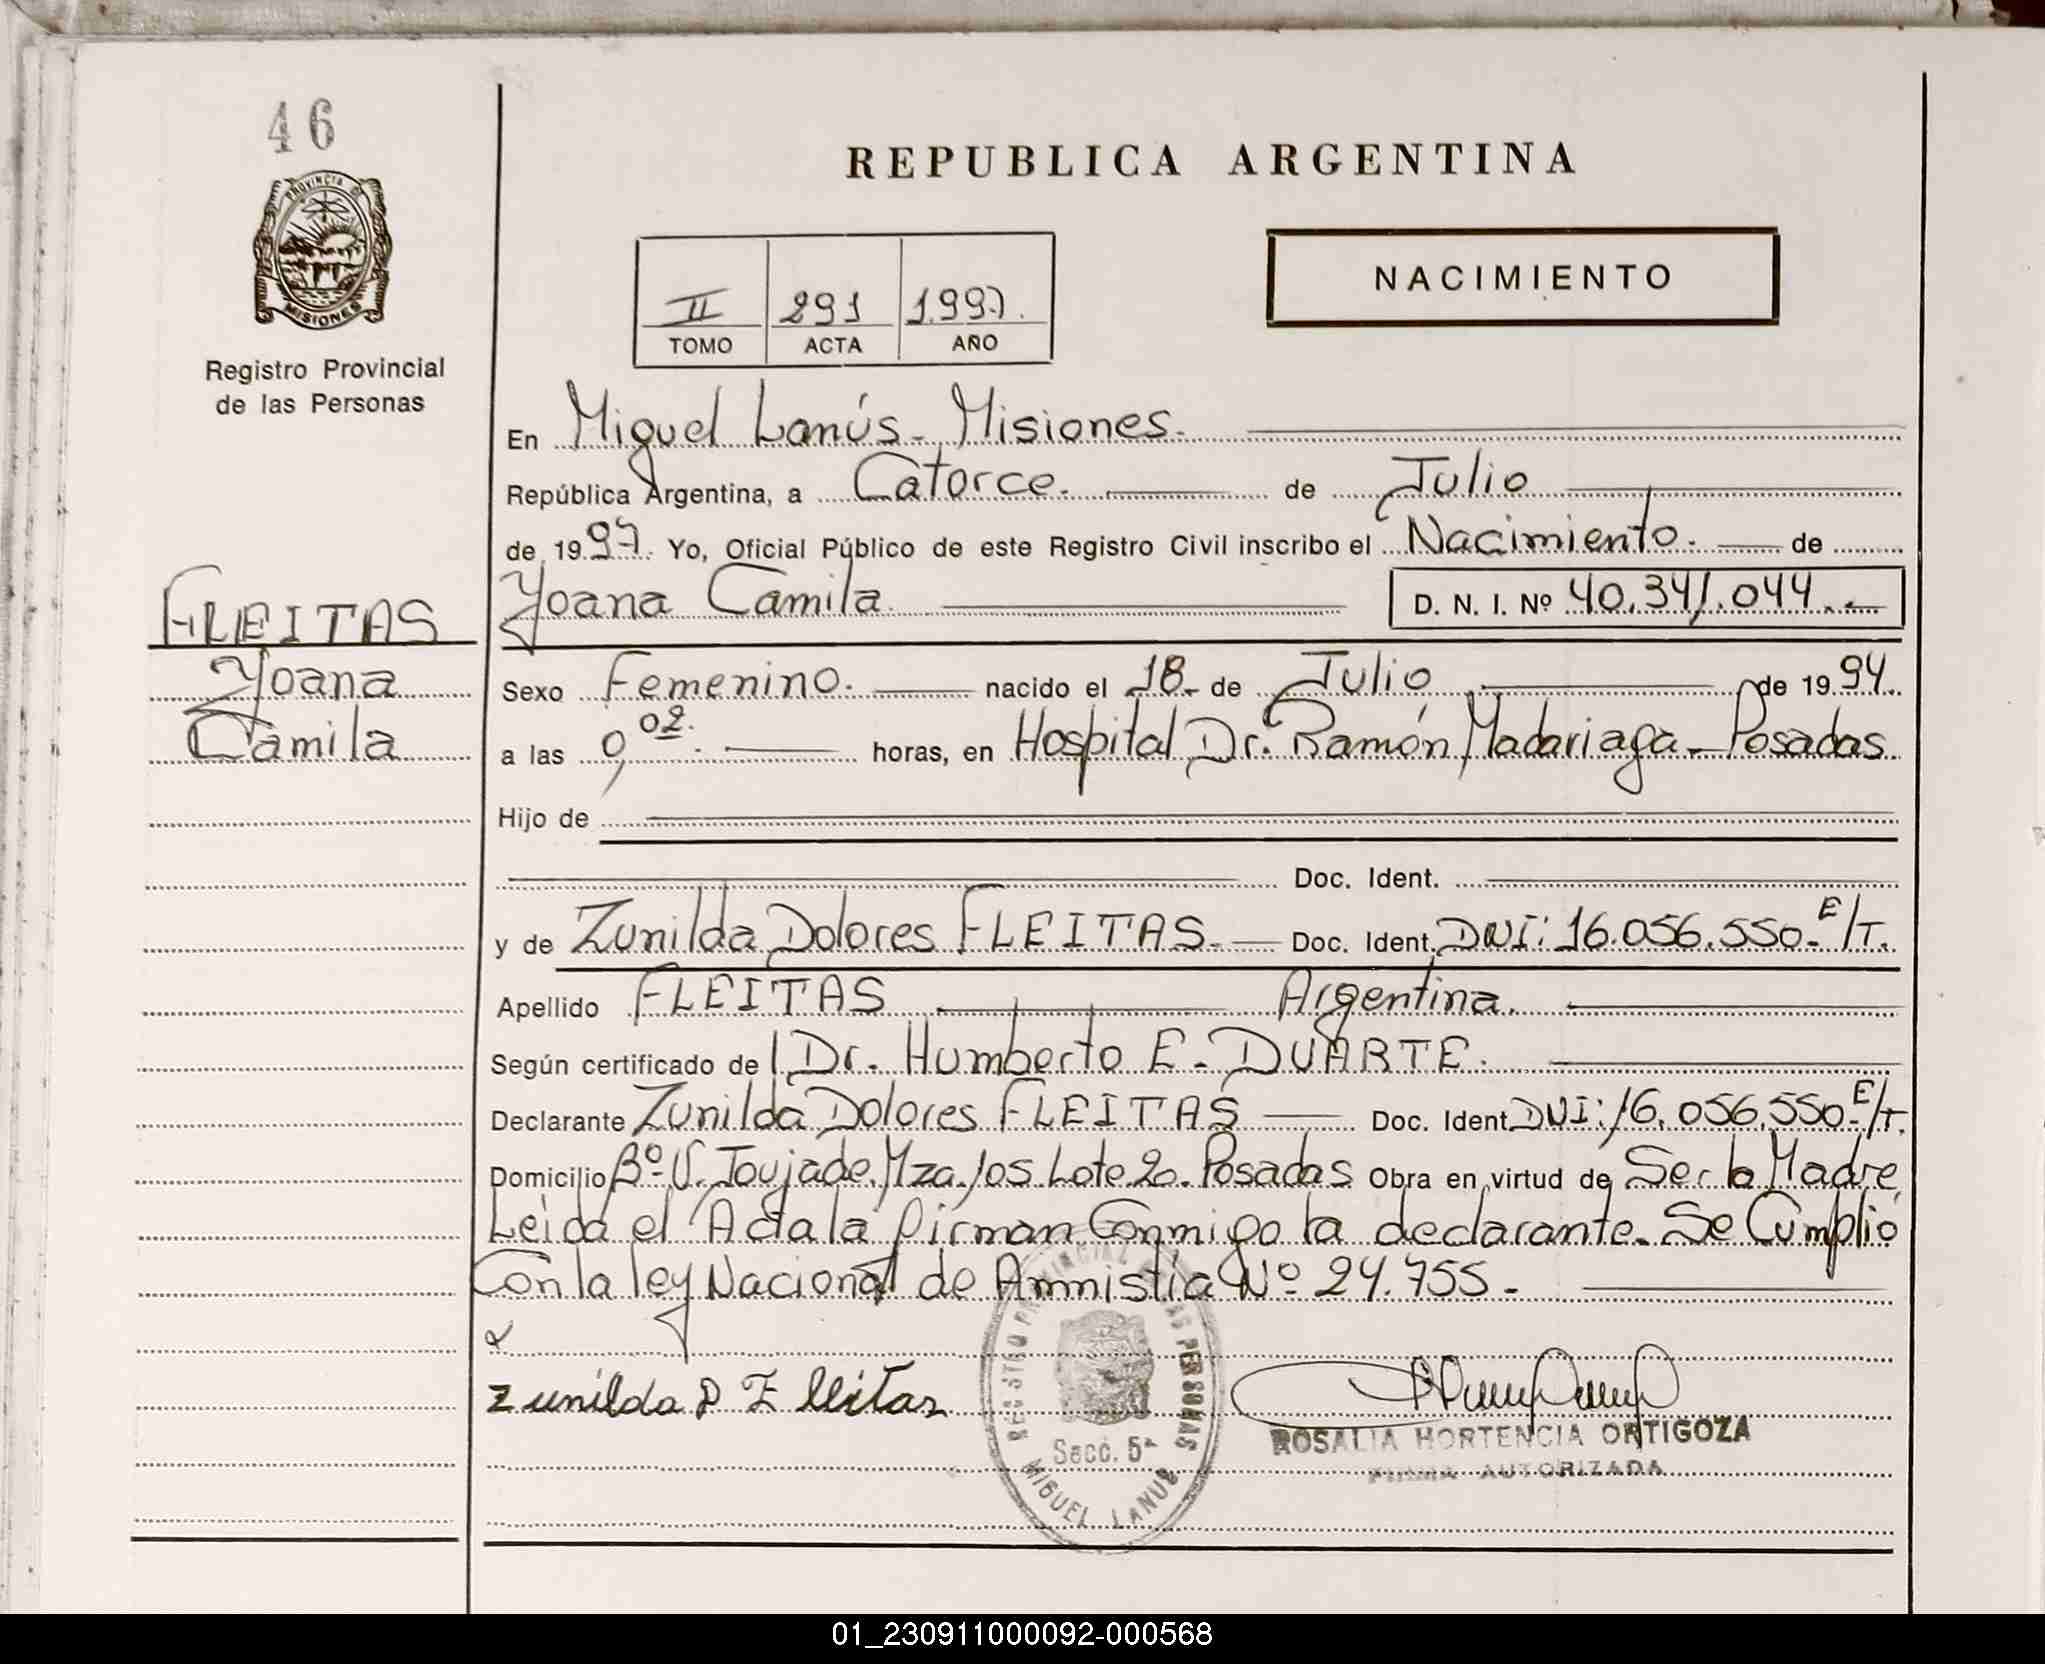 46
REPUBLICA ARGENTINA
PROVINCIA D
MISIONES
Registro Provincial
de las Personas
II 291 1.997.
TOMO ACTA AÑO
NACIMIENTO
En Miguel Lanús - Misiones.
República Argentina, a Catorce. de Julio
de 1997. Yo, Oficial Público de este Registro Civil inscribo el Nacimiento. de
Yoana Camila D. N. I. Nº 40.341.044.
FLEITAS
Yoana
Camila
Sexo Femenino. nacido el 18 de Julio de 1994.
a las 9,02. horas, en Hospital Dr. Ramón Madariaga - Posadas
Hijo de
Doc. Ident.
y de Zunilda Dolores FLEITAS. Doc. Ident. DNI: 16.056.550 - E/T.
Apellido FLEITAS Argentina.
Según certificado de Dr. Humberto E. DUARTE.
Declarante Zunilda Dolores FLEITAS Doc. Ident DNI: 16.056.550 - E/T.
Domicilio Bº V. Toujade. Mza. 105 Lote 20. Posadas Obra en virtud de Ser la Madre
Leida el Acta la firman Conmigo la declarante. Se Cumplio
Con la ley Nacional de Amnistía Nº 24.755 -
Zunilda D Flleitas
REGISTRO PROVINCIAL DE LAS PERSONAS
Secc. 5ª
MIGUEL LANUS
ROSALIA HORTENCIA ORTIGOZA
FIRMA AUTORIZADA
01_230911000092-000568